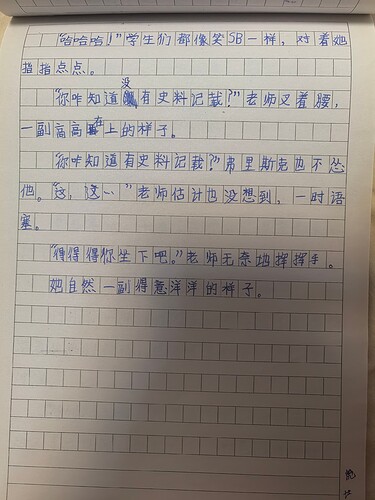 “哈哈哈！”学生们都像笑SB一样，对着她
指指点点。
“你咋知道没有史料记载？”老师叉着腰，
一副高高在上的样子。
“你咋知道有史料记载？”弗里斯克也不怂
他。“这，这…”老师估计也没想到，一时语
塞。
“得得得你坐下吧。”老师无奈地挥挥手。
她自然一副得意洋洋的样子。